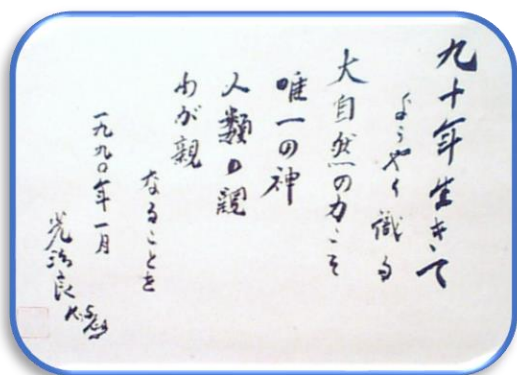 九十年生きて
ようやく識る
大自然の力こそ
唯一の神
人類の親
わが親
なることを
一九九〇年一月
光治良